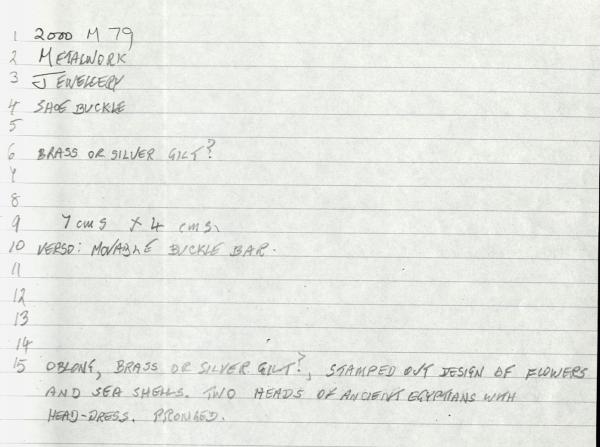 1 2000 M 79
2 METALWORK
3 JEWELLERY
4 SHOE BUCKLE
5
6 BRASS OR SILVER GILT?
7
8
9 7 cms X 4 cms.
10 VERSO: MOVABLE BUCKLE BAR.
11
12
13
14
15 OBLONG, BRASS OR SILVER GILT?, STAMPED OUT DESIGN OF FLOWERS
AND SEA SHELLS. TWO HEADS OF ANCIENT EGYPTIANS WITH
HEAD-DRESS. PRONGED.